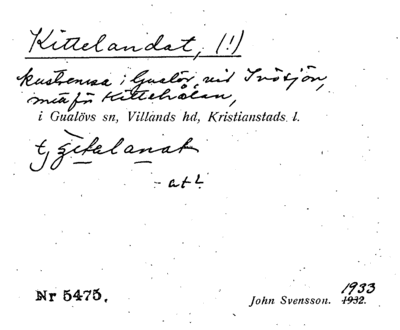 Kittelandat, (!)
kustremsa i Gualöv, vid Ivösjön,
mitt för Kittelhålan,
i Gualövs sn, Villands hd, Kristianstads l.
-at
Nr 5475.
1933
John Svensson. 1932.